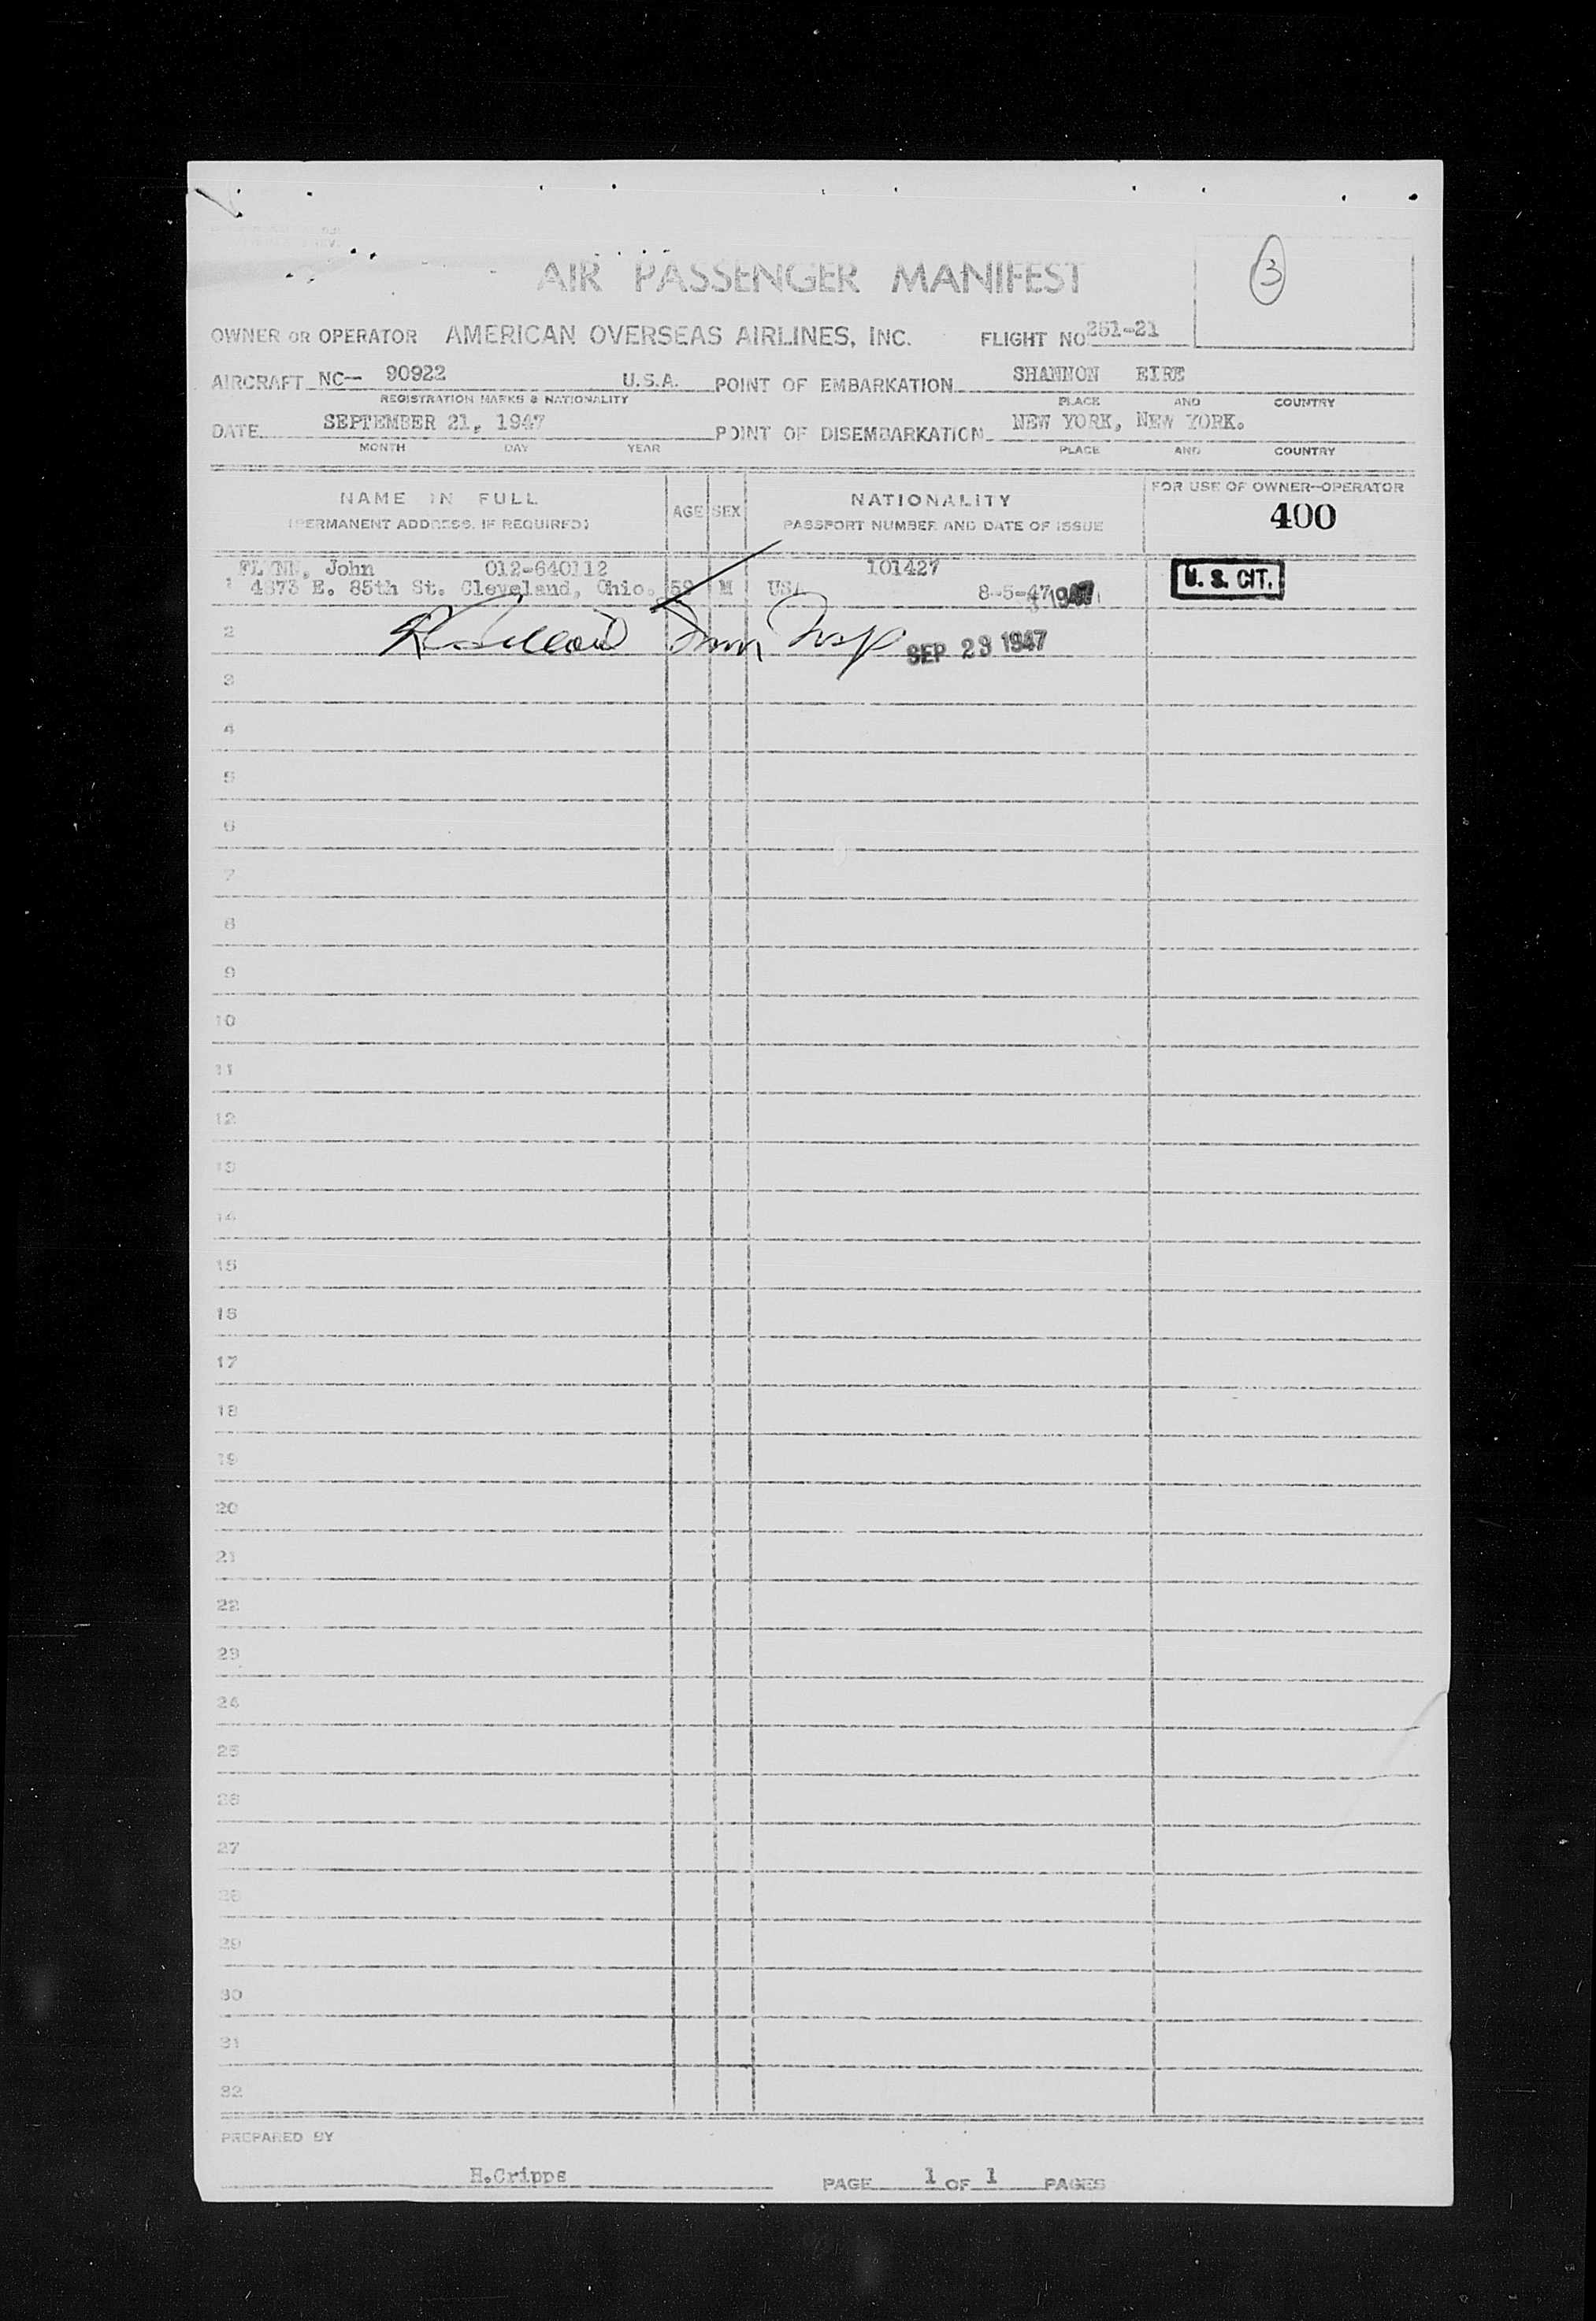 3
AIR PASSENGER MANIFEST
OWNER OR OPERATOR AMERICAN OVERSEAS AIRLINES, INC. FLIGHT NO 251-21
AIRCRAFT NC— 90922 U.S.A. POINT OF EMBARKATION SHANNON EIRE
REGISTRATION MARKS & NATIONALITY PLACE AND COUNTRY
DATE SEPTEMBER 21, 1947 POINT OF DISEMBARKATION NEW YORK, NEW YORK.
MONTH DAY YEAR PLACE AND COUNTRY
NAME IN FULL AGE SEX NATIONALITY FOR USE OF OWNER-OPERATOR
(PERMANENT ADDRESS, IF REQUIRED) PASSPORT NUMBER AND DATE OF ISSUE 400
FLYNN, John 012-640112 101427
1 4873 E. 85th St. Cleveland, Ohio. 59 M USA 8-5-47 1947 U. S. CIT.
2 Imm Insp SEP 23 1947
3
4
5
6
7
8
9
10
11
12
13
14
15
16
17
18
19
20
21
22
23
24
25
26
27
28
29
30
31
32
PREPARED BY
H.Cripps PAGE 1 OF 1 PAGES